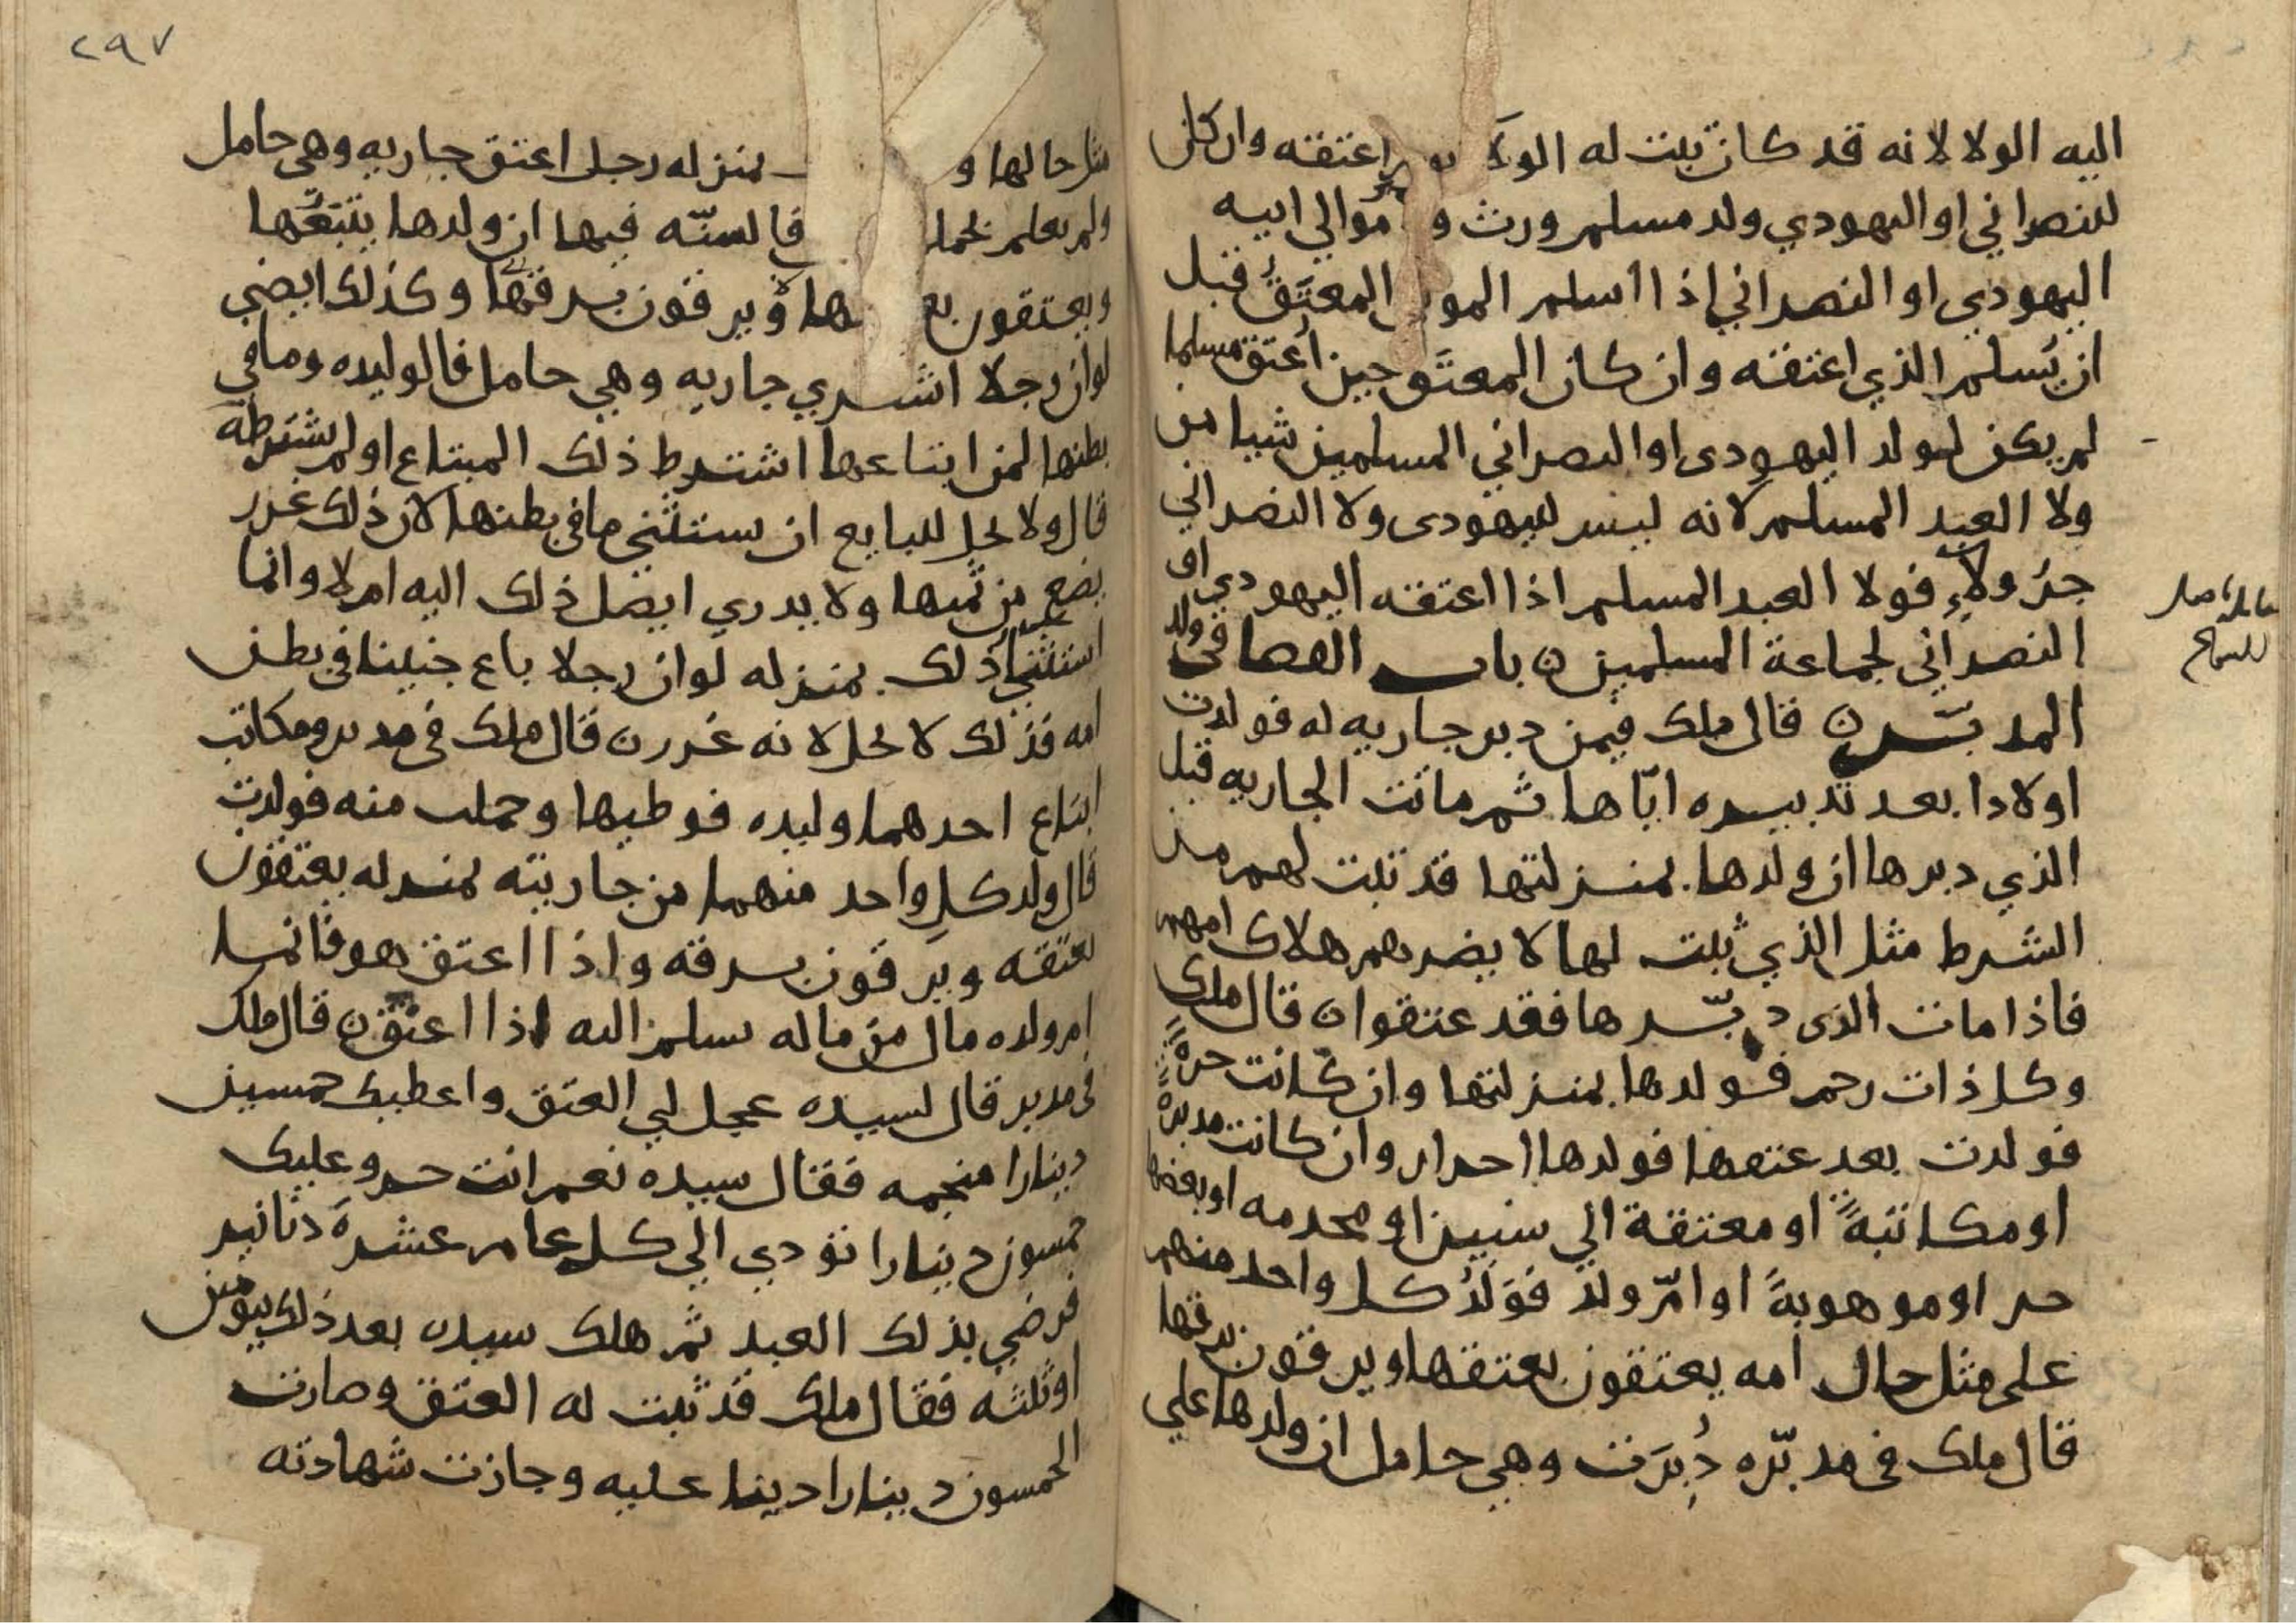 اليه الولا لانه قد كان ثبت له الولا يوم اعتقه وان كان
للنصراني او اليهودي ولد مسلم ورث موالي ابيه
اليهودي او النصراني اذا اسلم المولى المعتق قبل
ان يسلم الذي اعتقه وان كان المعتق حين اعتق مسلما
لم يكن لولد اليهودى او النصراني المسلمين شيا من
ولا العبد المسلم لانه ليس لليهودى ولا النصراني
جر ولاء فولا العبد المسلم اذا اعتقه اليهودي او
النصراني لجماعة المسلمين ه باب القضا في ولد
المدبرة ه قال ملك فيمن دبر جاريه له فولدت
اولادا بعد تدبيره اياها ثم ماتت الجاريه قبل
الذي دبرها ان ولدها بمنزلتها قد ثبت لهم من
الشرط مثل الذي ثبت لها لا يضرهم هلاك امهم
فاذا مات الذى دبرها فقد عتقوا ه قال ملك
وكل ذات رحم فولدها بمنزلتها وان كانت حرة
فولدت بعد عتقها فولدها احرار وان كانت مدبرة
او مكاتبة او معتقة الي سنين او مخدمه او بعضها
حر او موهوبة او ام ولد فولد كل واحد منهم
على مثل حال امه يعتقون بعتقها ويرقون برقها
قال ملك في مدبره دبرت وهي حامل ان ولدها علي
قابلنا
للسماع
٢٩٧
مثل حالها و بمنزله رجل اعتق جاريه وهي حامل
ولم يعلم بحملها فالسنه فيها ان ولدها يتبعها
ويعتقون بعتقها ويرقون برقها وكذلك ايضي
لو ان رجلا اشتري جاريه وهي حامل فالوليده وما في
بطنها لمن ابتاعها اشترط ذلك المبتاع او لم يشترطه
قال ولا يحل للبايع ان يستثني ما في بطنها لان ذلك غرر
يضع من ثمنها ولا يدري ايصل ذلك اليه ام لا وانما
استثني ذلك بمنزله لو ان رجلا باع جنينا في بطن
امه فذلك لا يحل لانه غرر ه قال ملك في مدبر ومكاتب
ابتاع احدهما وليده فوطيها وحملت منه فولدت
قال ولد كل واحد منهما من جاريته بمنزله يعتقون
بعتقه ويرقون برقه واذا اعتق هو فانما
ام ولده مال من ماله يسلم اليه اذا اعتق ه قال ملك
في مدبر قال لسيده عجل لي العتق واعطيك خمسين
دينارا منجمه فقال سيده نعم انت حر وعليك
خمسون دينارا تؤدي الي كل عام عشرة دنانير
فرضي بذلك العبد ثم هلك سيده بعد ذلك بيومين
او ثلثه فقال ملك قد ثبت له العتق وصارت
الخمسون دينارا دينا عليه وجازت شهادته